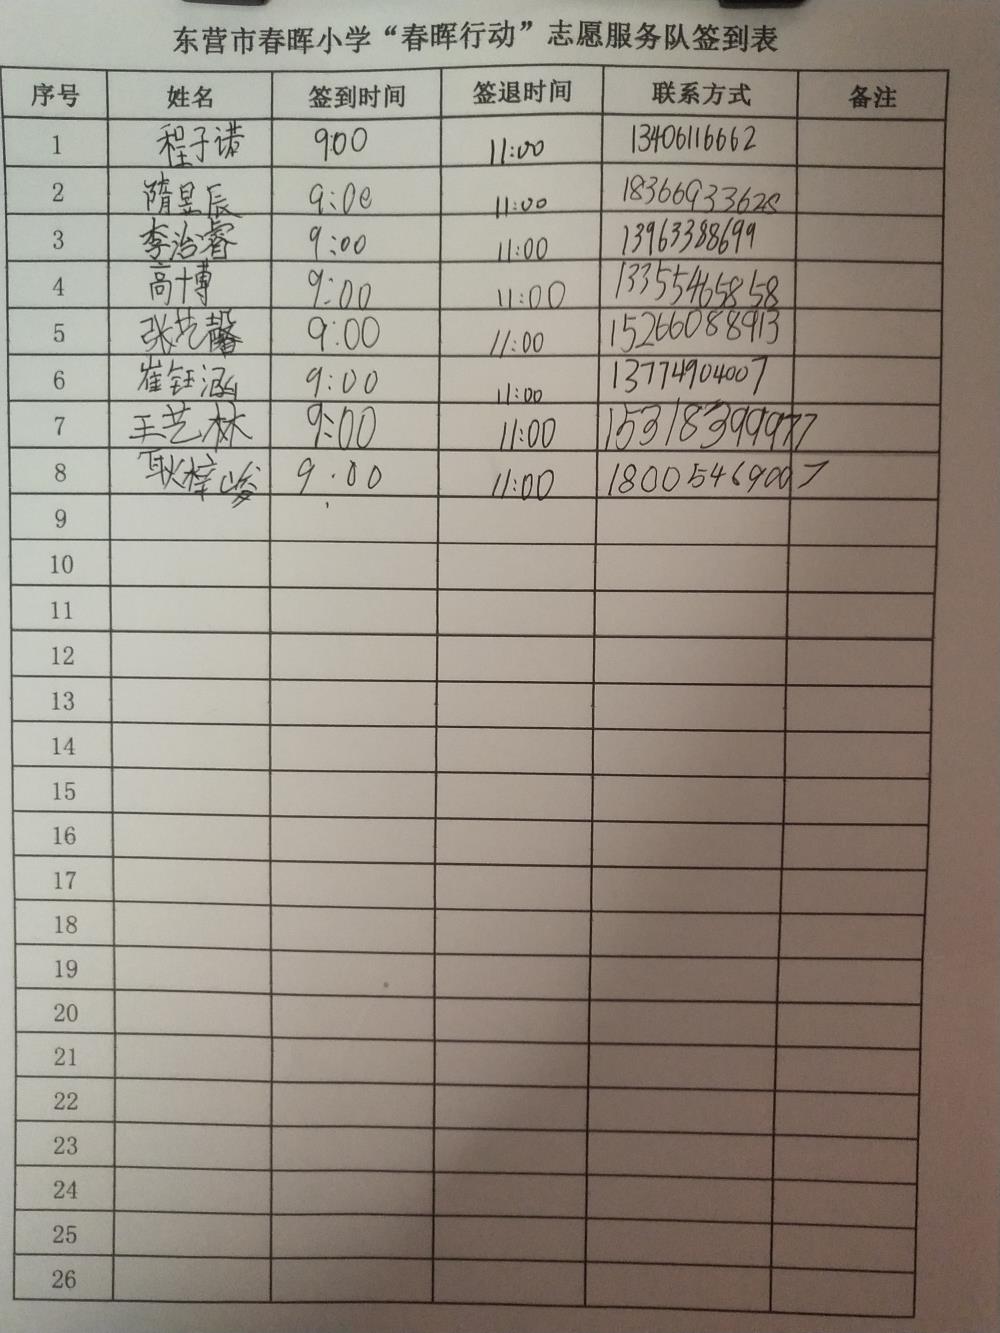 东营市春晖小学“春晖行动”志愿服务队签到表
序号 姓名 签到时间 签退时间 联系方式 备注
1 程子诺 9:00 11:00 13406116662
2 隋昱辰 9:00 11:00 18366933628
3 李治睿 9:00 11:00 13963388699
4 高十博 9:00 11:00 13355465858
5 张艺馨 9:00 11:00 15266088913
6 崔钰涵 9:00 11:00 13774904007
7 王艺林 9:00 11:00 15318399977
8 耿梓峻 9:00 11:00 18005469007
9
10
11
12
13
14
15
16
17
18
19
20
21
22
23
24
25
26